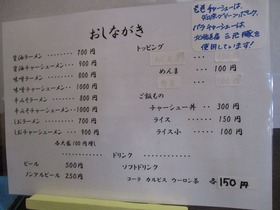 おしながき
醤油ラーメン ・・・・・・・・ 700円
醤油チャーシューメン ・・・・ 900円
味噌ラーメン ・・・・・・・・ 800円
味噌チャーシューメン ・・・・ 1000円
辛みそラーメン ・・・・・・・ 800円
辛みそチャーシューメン ・・・ 1000円
しおラーメン ・・・・・・・・ 700円
しおチャーシューメン ・・・・ 900円
各大盛100円増し
トッピング
めんま ・・・・・・ 100円
ご飯もの
チャーシュー丼 ・・・ 300円
ライス ・・・・・・ 150円
ライス小 ・・・・・ 100円
ドリンク
ビール 500円
ノンアルビール 250円
ソフトドリンク
コーラ カルピス ウーロン茶 各150円
チャーシューは、
バラチャーシューは
使用しています!